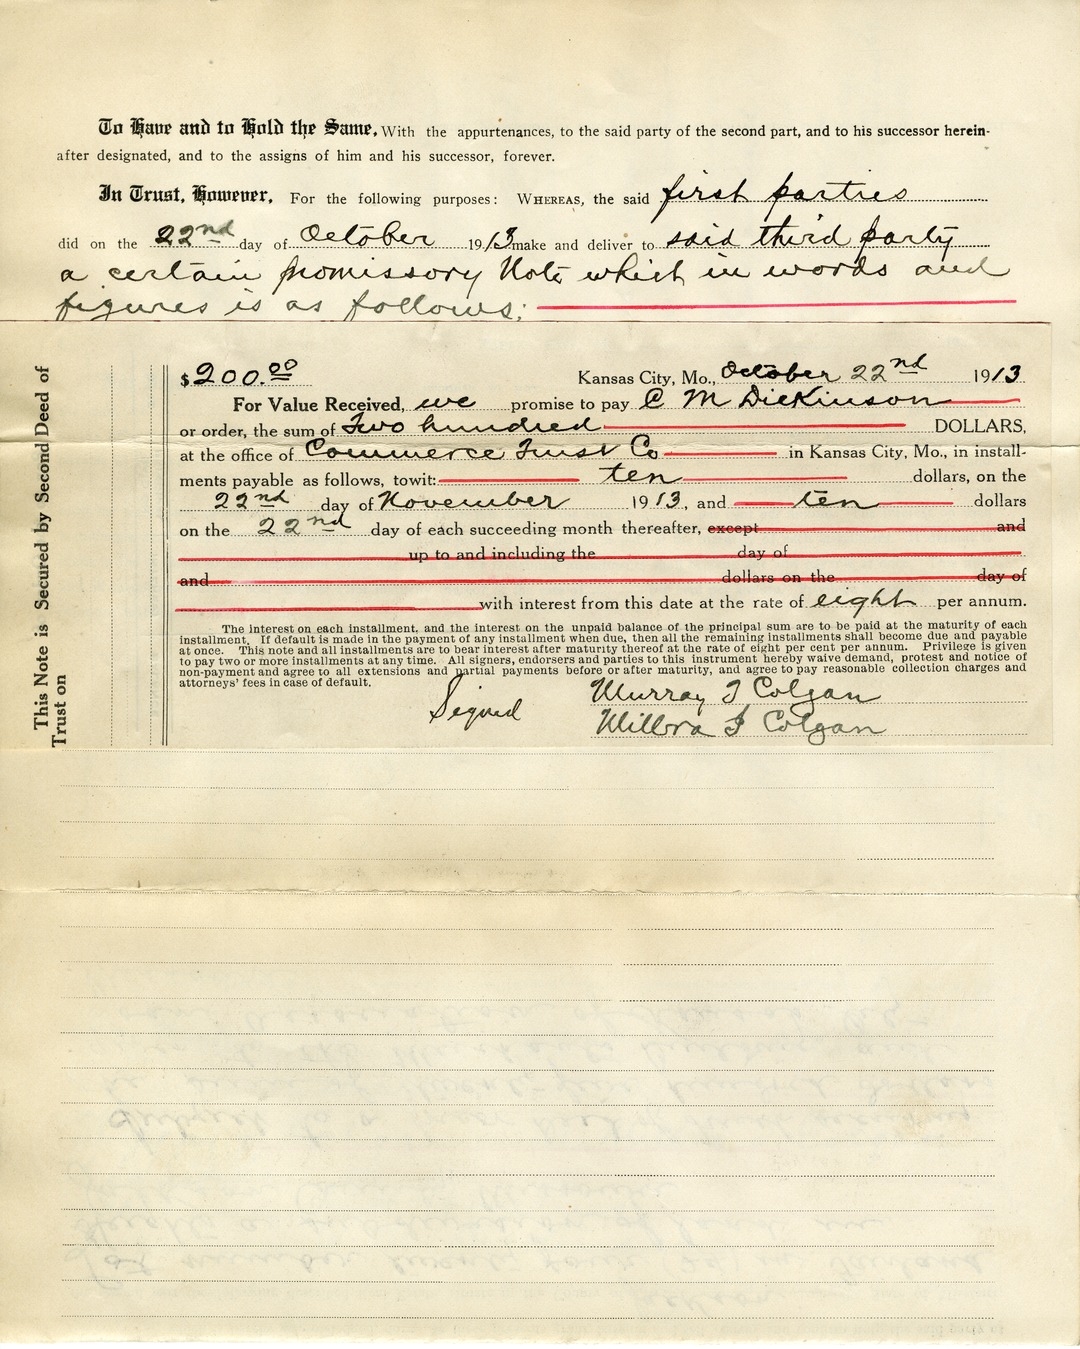 To Have and to Hold the Same, With the appurtenances, to the said party of the second part, and to his successor herein-
after designated, and to the assigns of him and his successor, forever.
In Trust, However, For the following purposes: WHEREAS, the said first parties
did on the 22nd day of October 1913 make and deliver to said third party
a certain promissory Note which in words and
figures is as follows:
This Note is Secured by Second Deed of
Trust on
$200.00 Kansas City, Mo., October 22nd 1913
For Value Received, we promise to pay C M Dickinson
or order, the sum of Two hundred DOLLARS,
at the office of Commerce Trust Co in Kansas City, Mo., in install-
ments payable as follows, towit: ten dollars, on the
22nd day of November 1913, and ten dollars
on the 22nd day of each succeeding month thereafter, except and
up to and including the day of
and dollars on the day of
with interest from this date at the rate of eight per annum.
The interest on each installment, and the interest on the unpaid balance of the principal sum are to be paid at the maturity of each
installment. If default is made in the payment of any installment when due, then all the remaining installments shall become due and payable
at once. This note and all installments are to bear interest after maturity thereof at the rate of eight per cent per annum. Privilege is given
to pay two or more installments at any time. All signers, endorsers and parties to this instrument hereby waive demand, protest and notice of
non-payment and agree to all extensions and partial payments before or after maturity, and agree to pay reasonable collection charges and
attorneys' fees in case of default.
Signed Murray T Colgan
Willora F Colgan